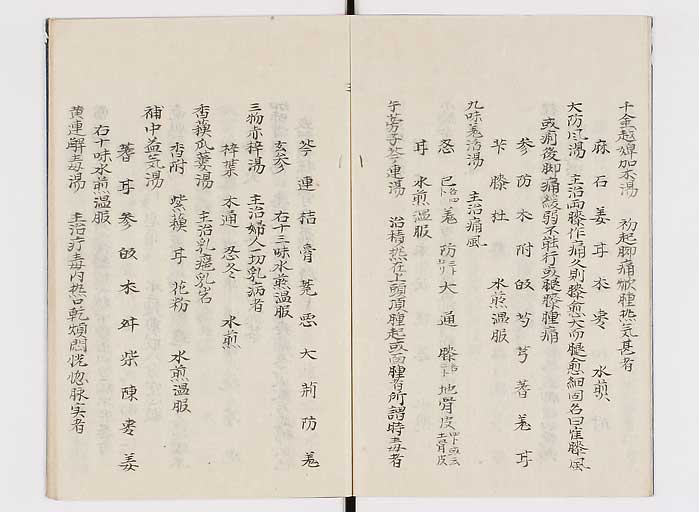 千金越婢加朮湯　初起脚痛焮腫熱気甚者
麻 石 姜 耳 朮 棗　水煎
大防風湯　主治両膝作痛久則膝愈大而腿愈細因名曰寉膝風
或痢後脚痛緩弱不能行或腿膝腫痛
参 防 朮 附 伖 芎 芍 耆 羗 耳
芐 膝 杜　水煎温服
九味羗活湯　主治痛風
忍 已 羗 防 大 通 膝 地骨皮
耳　水煎温服
牛蒡子芩連湯　治積熱在上頭項腫起或面腫者所謂時毒者
芩 連 桔 膏 大 荊 防 羗
玄参　右十三味水煎温服
三物赤梓湯　主治婦人一切乳病者
梓葉 木通 忍冬　水煎
香蘓瓜蔞湯　主治乳癰乳岩
香附 紫蘓 耳 花粉　水煎温服
補中益気湯
耆 耳 参 伖 朮 舛 柴 陳 棗 姜
右十味水煎温服
黄連解毒湯　主治疔毒内熱口乾煩悶恍惚脉実者